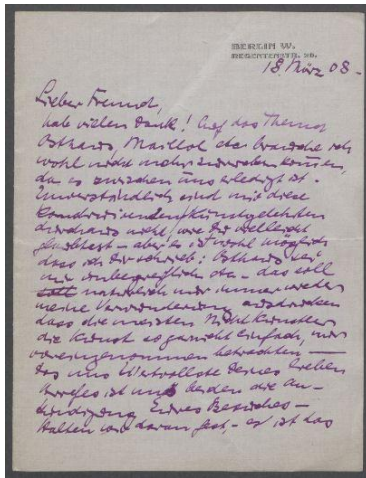 BERLIN W.
REGENTENSTR. 20.
18 März 08.
Lieber Freund,
hab vielen Dank! Auf das Thema
Osthaus, Maillol etc. brauche ich
wohl nicht mehr zurückkommen,
da es zwischen uns erledigt ist.
Unverständlich sind mir diese
Kunstgelehrten
durchaus nicht, wie Du vielleicht
glaubtest – aber es ist wohl möglich
dass ich Dir schrieb: Osthaus sei
mir unbegreiflich etc – das soll
natürlich nur immer wieder
meine Verwunderung ausdrücken
dass die meisten Nichtkünstler
die Kunst so garnicht einfach, nur
voreingenommen betrachten –
Das uns Wertvollste Deines lieben
Briefes ist uns beiden die An-
kündigung Eures Besuches –
Halten wir daran fest, – es ist das